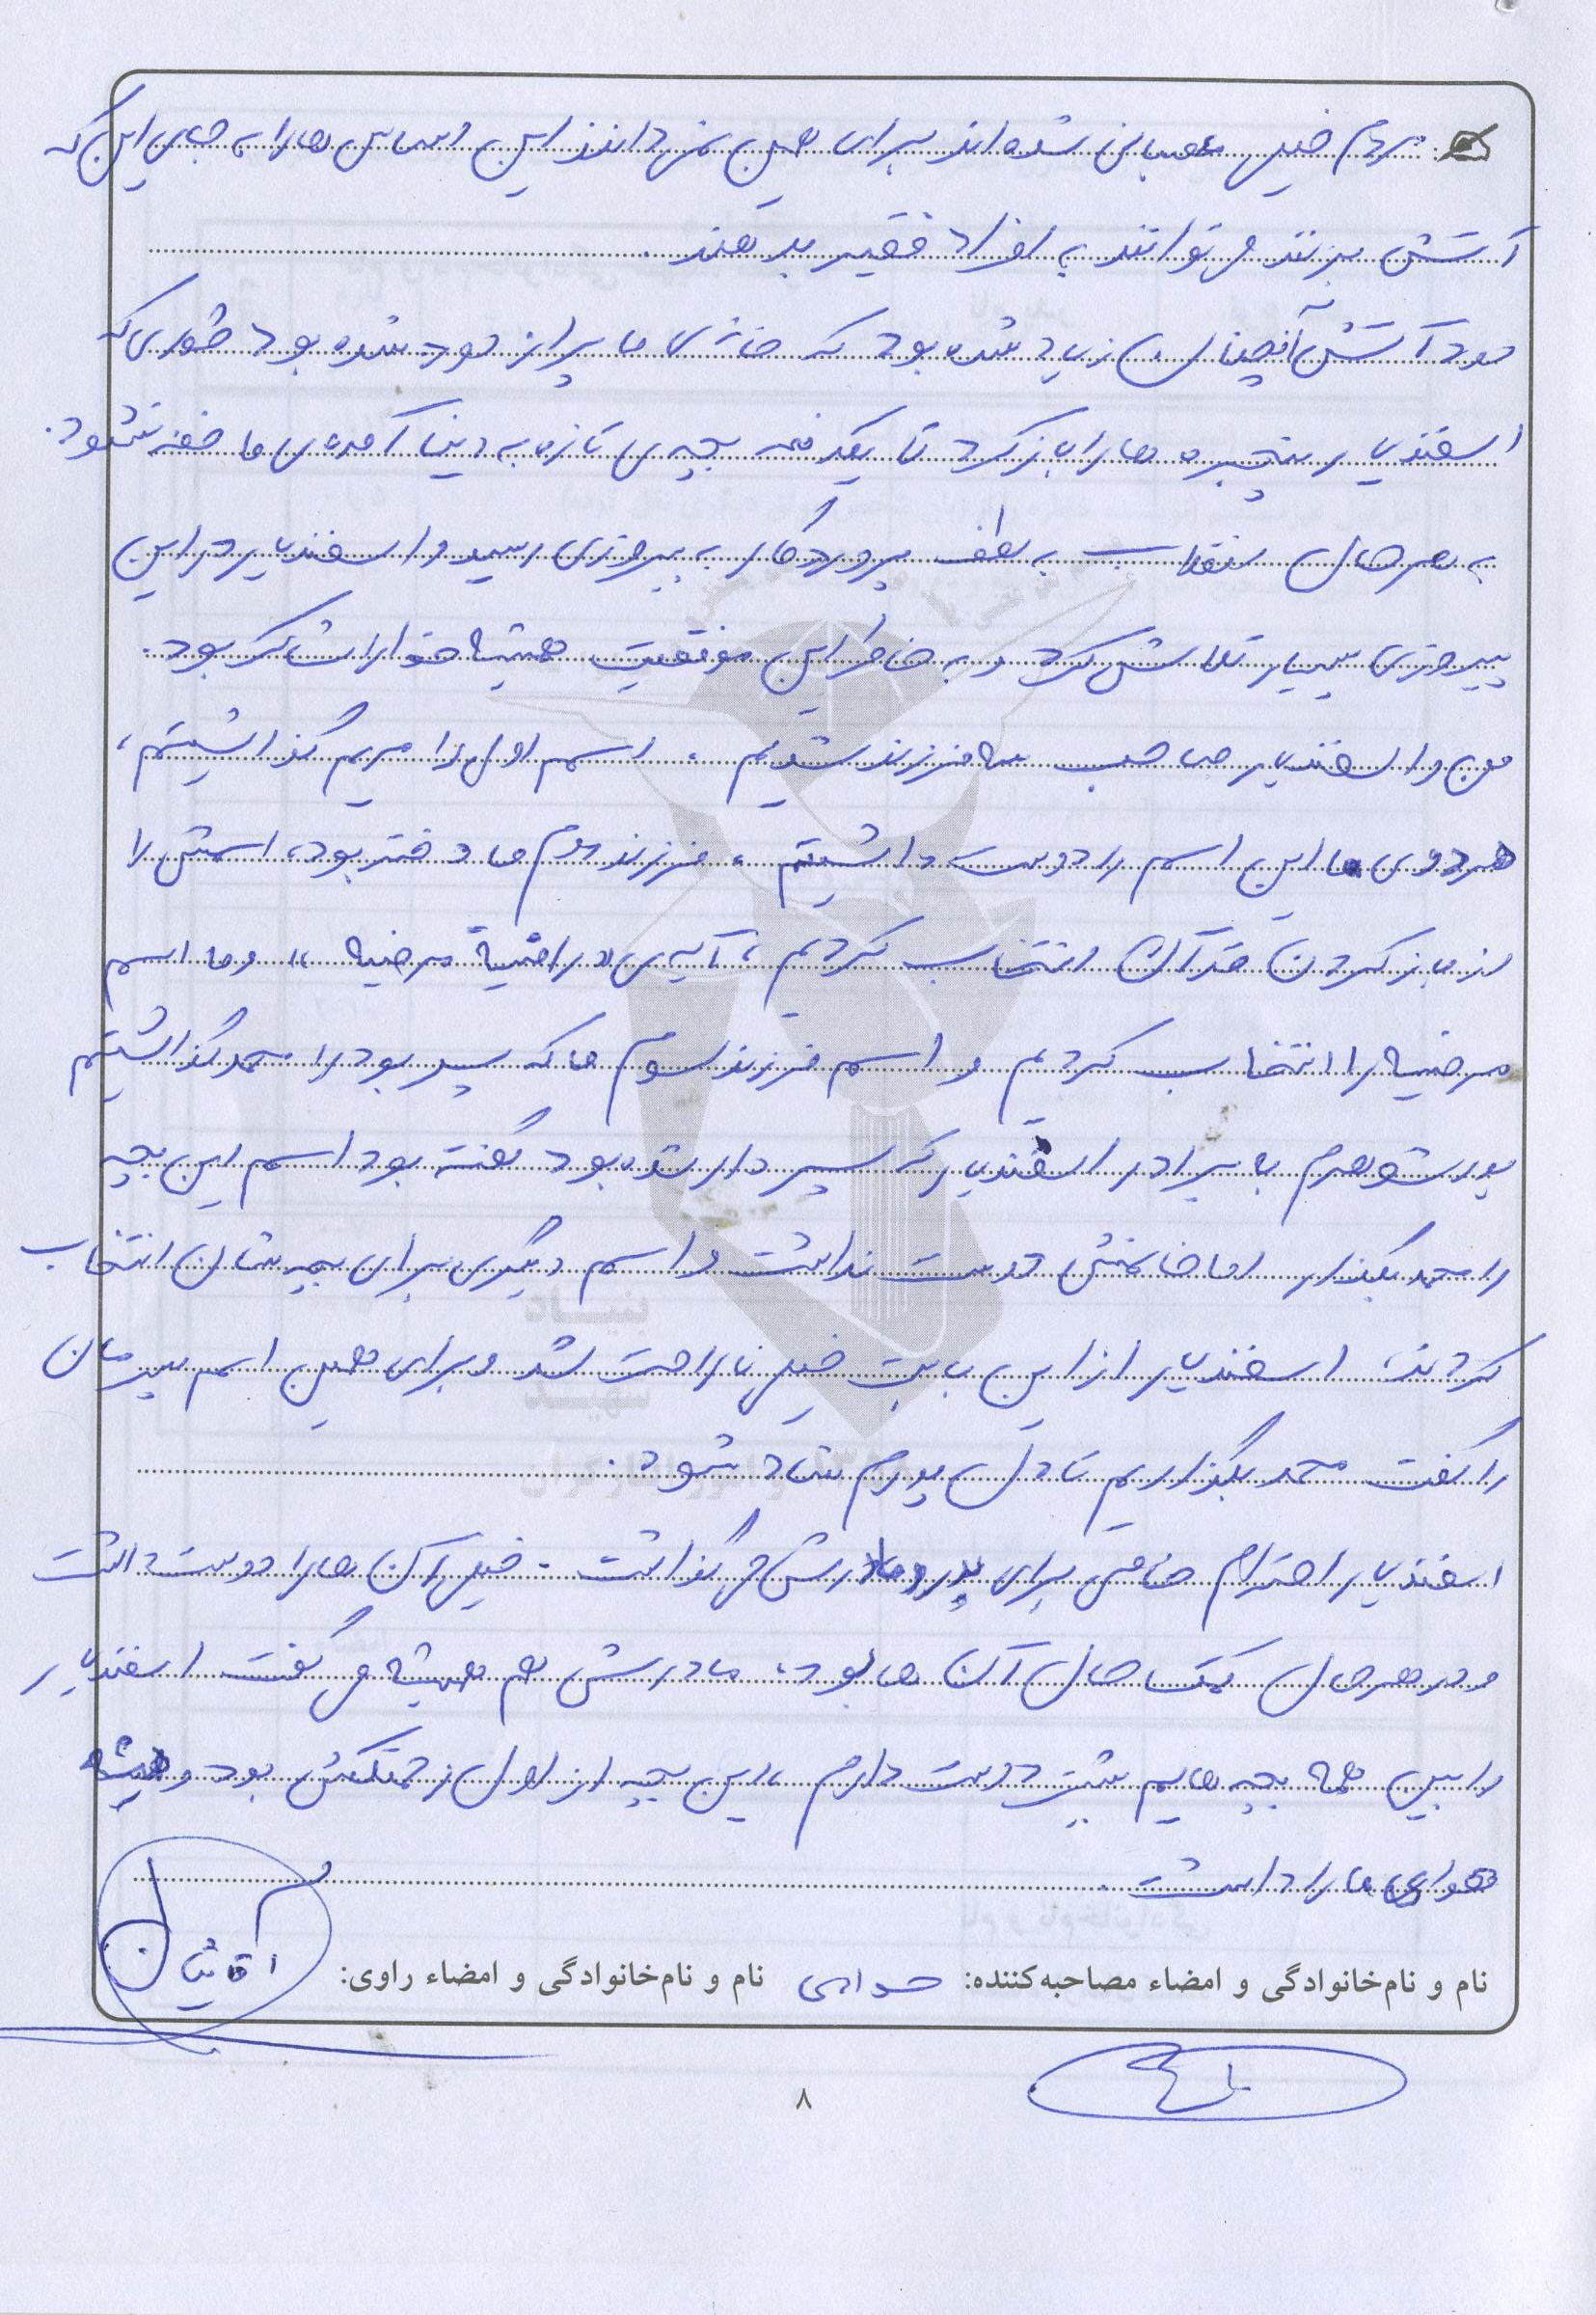 مردم خیلی عصبانی شده‌اند برای همین نمی‌دانند این وسایل ها را به جای این که
آتش بزنند می توانند به افراد فقیر بدهند.
دود آتش آنچنان زیاد شده بود که خانه‌ی ما پر از دود شده بود طوری که
اسفندیار پنجره ها را باز کرد تا یکدفعه بچه‌ی تازه به دنیا آمده‌ی ما خفه نشود.
به هر حال انقلاب به لطف پروردگار به پیروزی رسید و اسفندیار در این
پیروزی بسیار تلاش کرد و به خاطر این موفقیت همیشه خدا را شاکر بود.
من و اسفندیار صاحب سه فرزند شدیم، اسم اولی را مریم گذاشتیم،
هر دوی ما این اسم را دوست داشتیم، فرزند دوم ما دختر بود، اسمش را
از باز کردن قرآن انتخاب کردیم، آیه‌ی «راضیة مرضیه» و ما اسم
مرضیه را انتخاب کردیم و اسم فرزند سوم ما که پسر بود را محمد گذاشتیم
پدر شوهرم به برادر اسفندیار که پسر دار شده بود گفته بود اسم این بچه
را محمد بگذار اما خانمش دوست نداشت و اسم دیگری برای بچه شان انتخاب
کردند، اسفندیار از این بابت خیلی ناراحت شد و برای همین اسم پسرمان
را گفت محمد بگذاریم تا دل پدرم شاد شود.
اسفندیار احترام خاصی برای پدر و مادرش می گذاشت. خیلی آن ها را دوست داشت
و در هر حال کمک حال آن ها بود، مادرش هم همیشه می گفت اسفندیار
را بین همه بچه هایم بیشتر دوست دارم، این بچه از اول زحمتکش بود و همیشه
هوای ما را داشت.
نام و نام‌خانوادگی و امضاء مصاحبه‌کننده: نام و نام‌خانوادگی و امضاء راوی:
۸